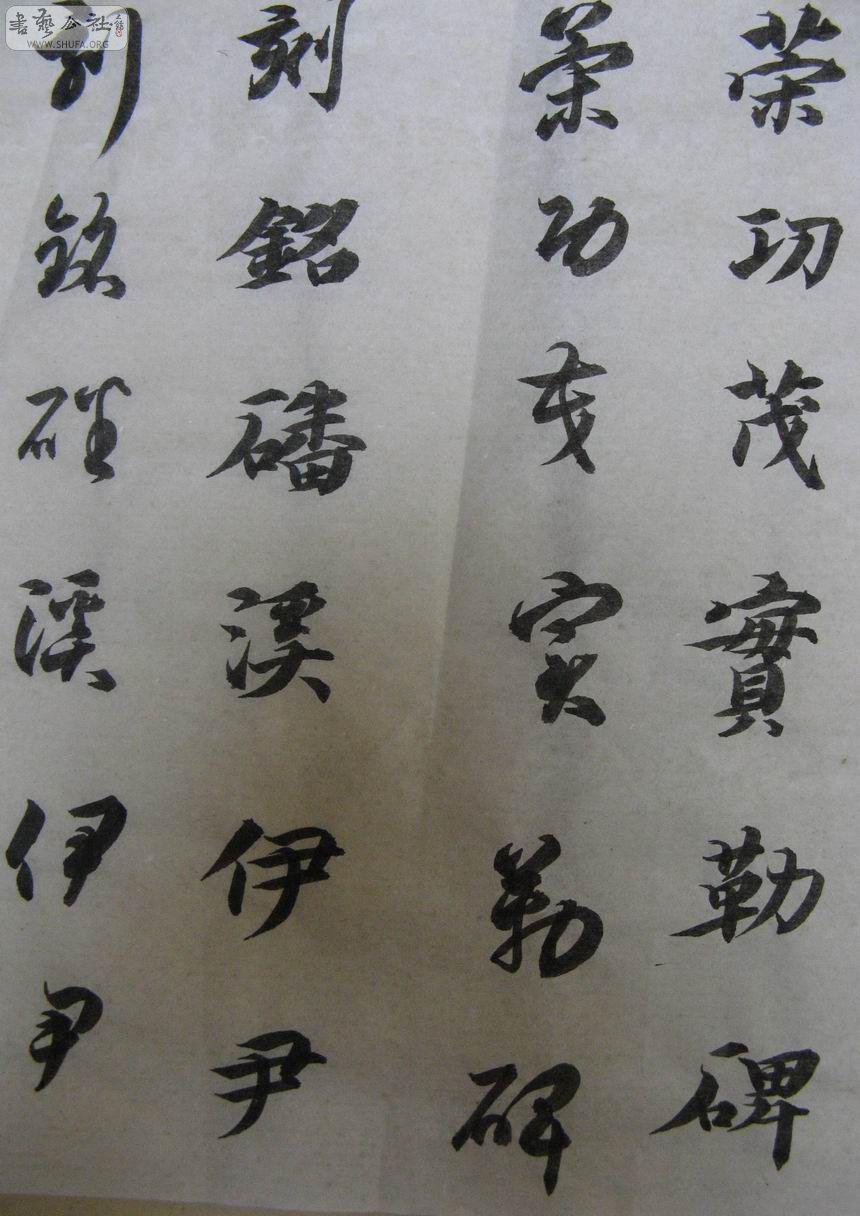 荣功茂實勒碑
荣功茂實勒碑
刻銘磻溪伊尹
刻銘磻溪伊尹
書藝公社
WWW.SHUFA.ORG